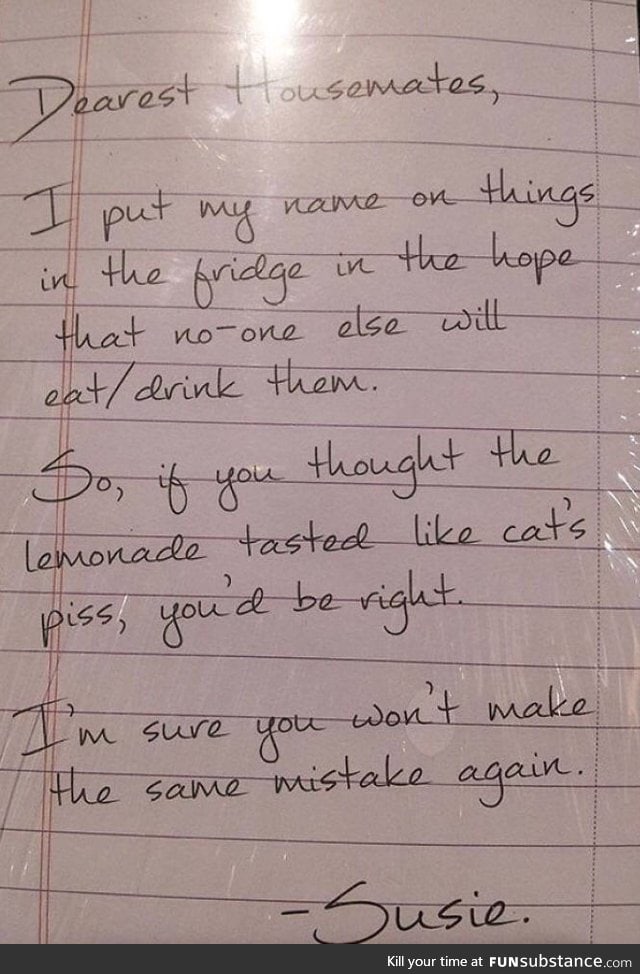 Dearest Housemates,
I put my name on things
in the fridge in the hope
that no-one else will
eat/drink them.
So, if you thought the
lemonade tasted like cat's
piss, you'd be right.
I'm sure you won't make
the same mistake again.
-Susie.
Kill your time at FUNsubstance.com